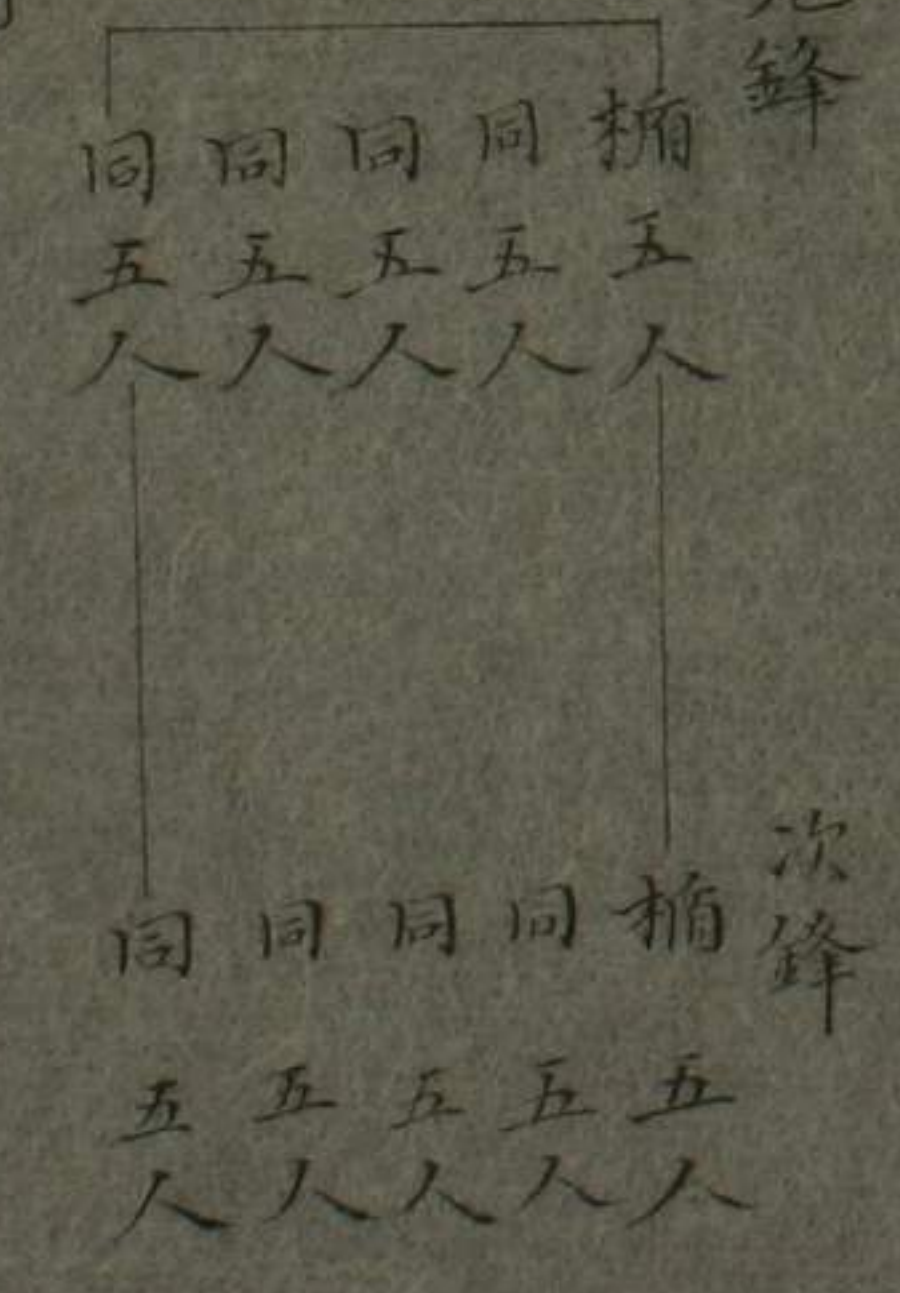 先鋒
楯五人
同五人
同五人
同五人
同五人
次鋒
楯五人
同五人
同五人
同五人
同五人